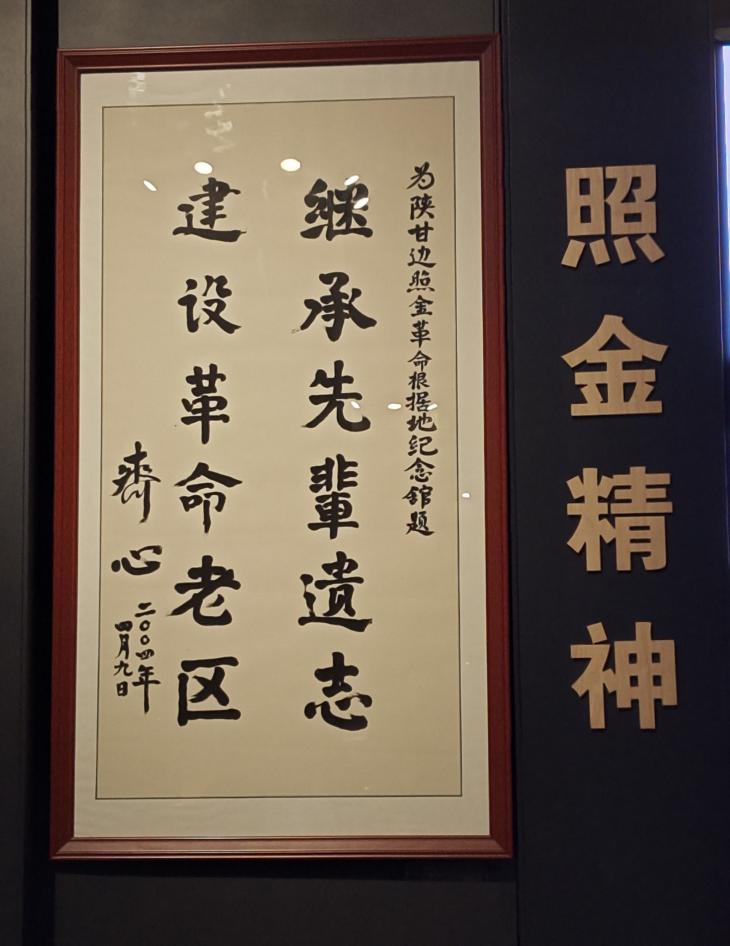 照金精神
为陕甘边照金革命根据地纪念馆题
继承先輩遗志
建设革命老区
齐心
二〇〇四年
四月九日